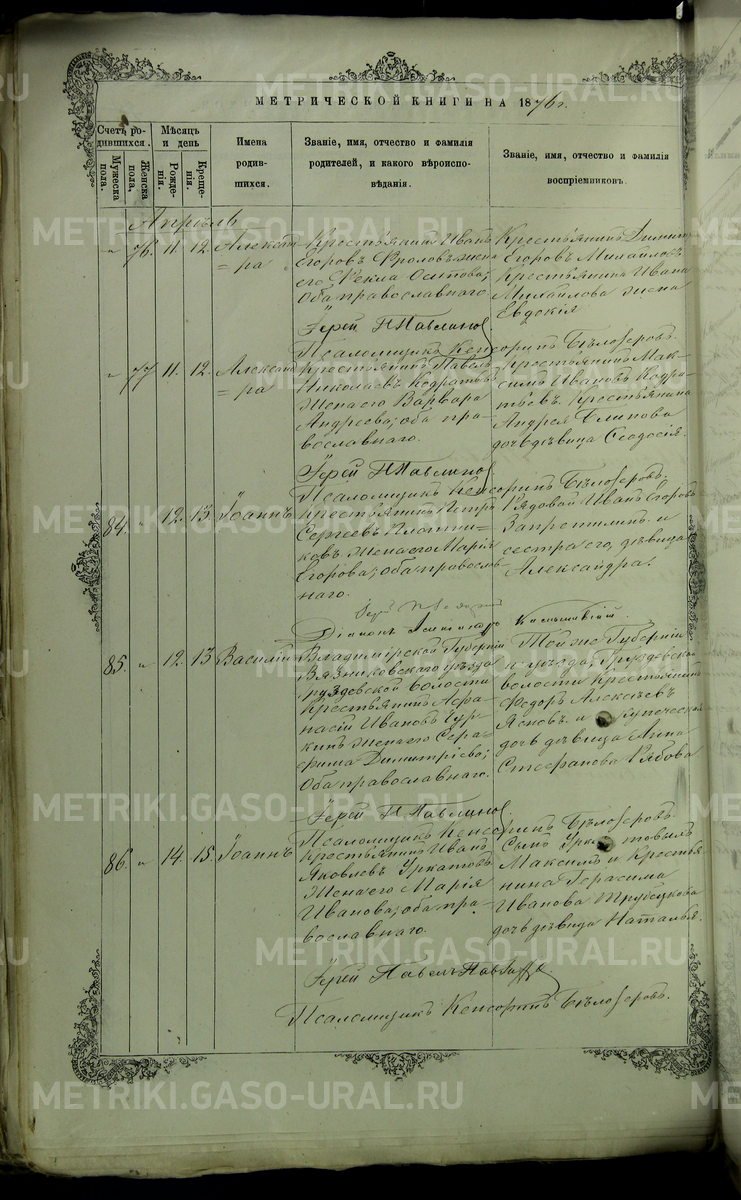 МЕТРИЧЕСКОЙ КНИГИ НА 1876 г.
Счетъ родившихся.
Мужеска пола.
Женска пола.
Мѣсяцъ и день
Рожденія.
Крещенія.
Имена родившихся.
Званіе, имя, отчество и фамилія родителей, и какого вѣроисповѣданія.
Званіе, имя, отчество и фамилія воспріемниковъ.
Апрѣль
" 76. 11. 12. Александ=ра
Крестьянинъ Иванъ
Егоровъ Фроловъ, жена
его Фекла Осипова;
Оба православнаго.
Крестьянинъ Димит
Егоровъ Михайловъ
Крестьянина Ивана
Михайлова жена
Евдокія
Іерей П Павлинов
Псаломщикъ Кенсоринъ Бѣлозеровъ.
" 77 11. 12. Александ=ра
Крестьянинъ Павелъ
Николаевъ Кодратьев
Жена его Варвара
Андреева; оба пра-
вославнаго.
Крестьянинъ Мак-
симъ Ивановъ Кодра-
тьевъ. Крестьянина
Андрея Блинова
дочь дѣвица Ѳеодосія.
Іерей П Павлинов
Псаломщикъ Кенсоринъ Бѣлозеровъ.
84. " 12. 13. Іоаннъ
Крестьянинъ Петръ
Сергѣевъ Плотни-
ковъ Жена его Марія
Егорова; оба правосла-
наго.
Рядовой Иванъ Егоровъ
Запретилинъ и
сестра его, дѣвица
Александра.
Діаконъ
85. " 12. 13 Василій
Владимірской Губерніи
Вязниковскаго уѣзда
Груздевской волости
Крестьянинъ Афа-
насій Ивановъ Чур-
кинъ Жена его Сера-
фима Димитріева;
Оба православнаго.
Той же Губерніи
и уѣзда, Груздевской
волости крестьянинъ
Федоръ Алексѣевъ
Ясновъ и Купеческая
дочь дѣвица Анна
Стефанова Рябова
Іерей П Павлинов
Псаломщикъ Кенсоринъ Бѣлозеровъ.
86. " 14. 15. Іоаннъ
Крестьянинъ Иванъ
Яковлевъ Уркатовъ
Жена его Марія
Иванова; оба пра-
вославнаго.
Сынъ Уркатовымъ
Максимъ и Крестья-
нина Герасима
Иванова Трубецкова
дочь дѣвица Наталья.
Іерей Павелъ Павлинов
Псаломщикъ Кенсоринъ Бѣлозеровъ.
METRIKI.GASO-URAL.RU